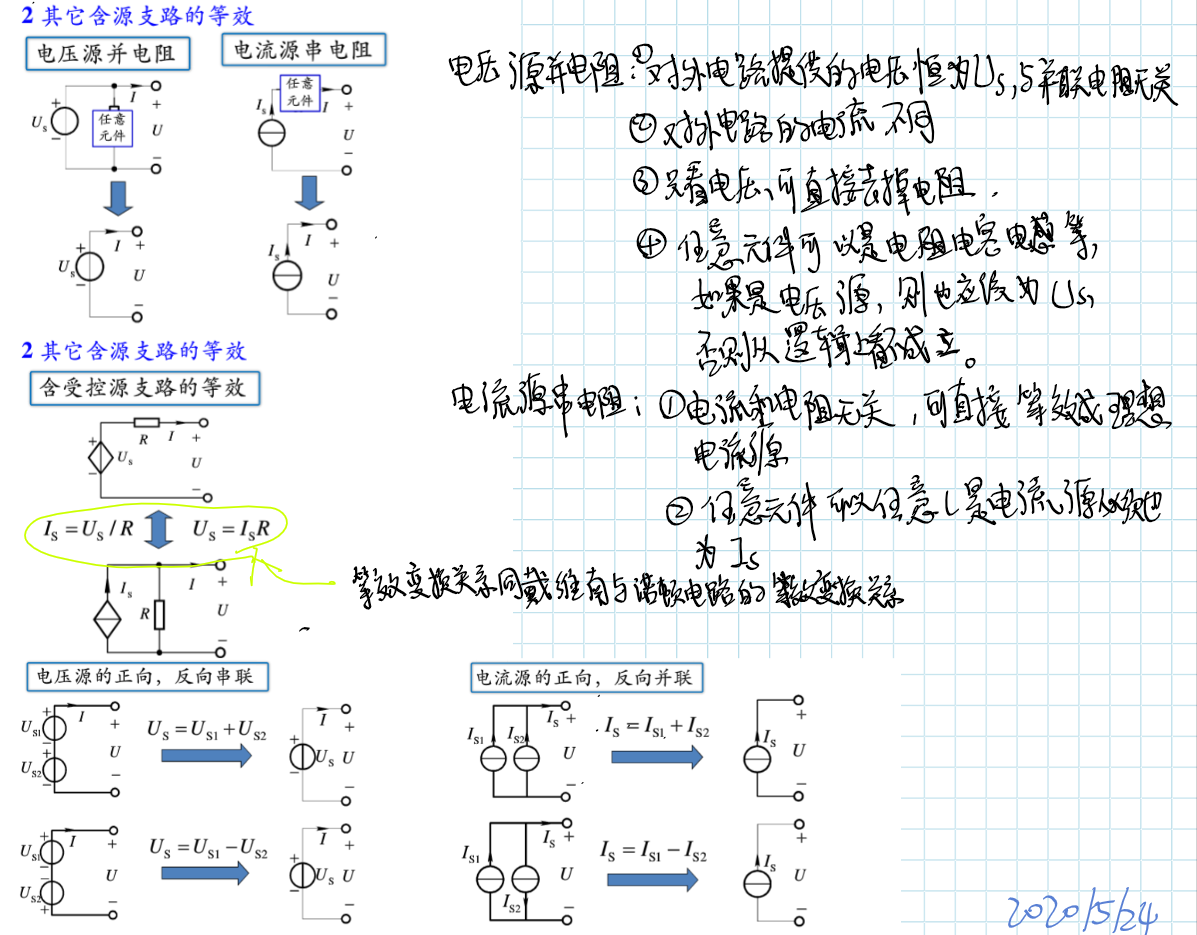 2 其它含源支路的等效
电压源并电阻
电流源串电阻
U_s
+
−
任意
元件
I
+
U
−
I_s
任意
元件
I
+
U
−
U_s
+
−
I
+
U
−
I_s
I
+
U
−
电压源并电阻:①对外电路提供的电压恒为Us,与并联电阻无关
②对外电路的电流不同
③只看电压,可直接去掉电阻.
④任意元件可以是电阻电容电感等,
如果是电压源,则也应该为Us,
否则从逻辑上都成立。
2 其它含源支路的等效
含受控源支路的等效
+
−
U_s
R
I
+
U
−
I_S = U_S / R
U_S = I_S R
I_s
R
I
+
U
−
电流源串电阻:①电流和电阻无关,可直接等效成理想
电流源
②任意元件可以任意(是电流源必须也
为Is
等效变换关系同戴维南与诺顿电路的等效变换关系
电压源的正向,反向串联
U_S1
+
−
U_S2
+
−
I
+
U
−
U_S = U_S1 + U_S2
I
+
−
U_s
+
U
−
U_S1
+
−
U_S2
−
+
I
+
U
−
U_S = U_S1 − U_S2
I
+
−
U_s
+
U
−
电流源的正向,反向并联
I_S1
I_S2
I_s
+
U
−
I_S = I_S1 + I_S2
I_s
+
U
−
I_S1
I_S2
I_s
+
U
−
I_S = I_S1 − I_S2
I_s
+
U
−
2020/5/24